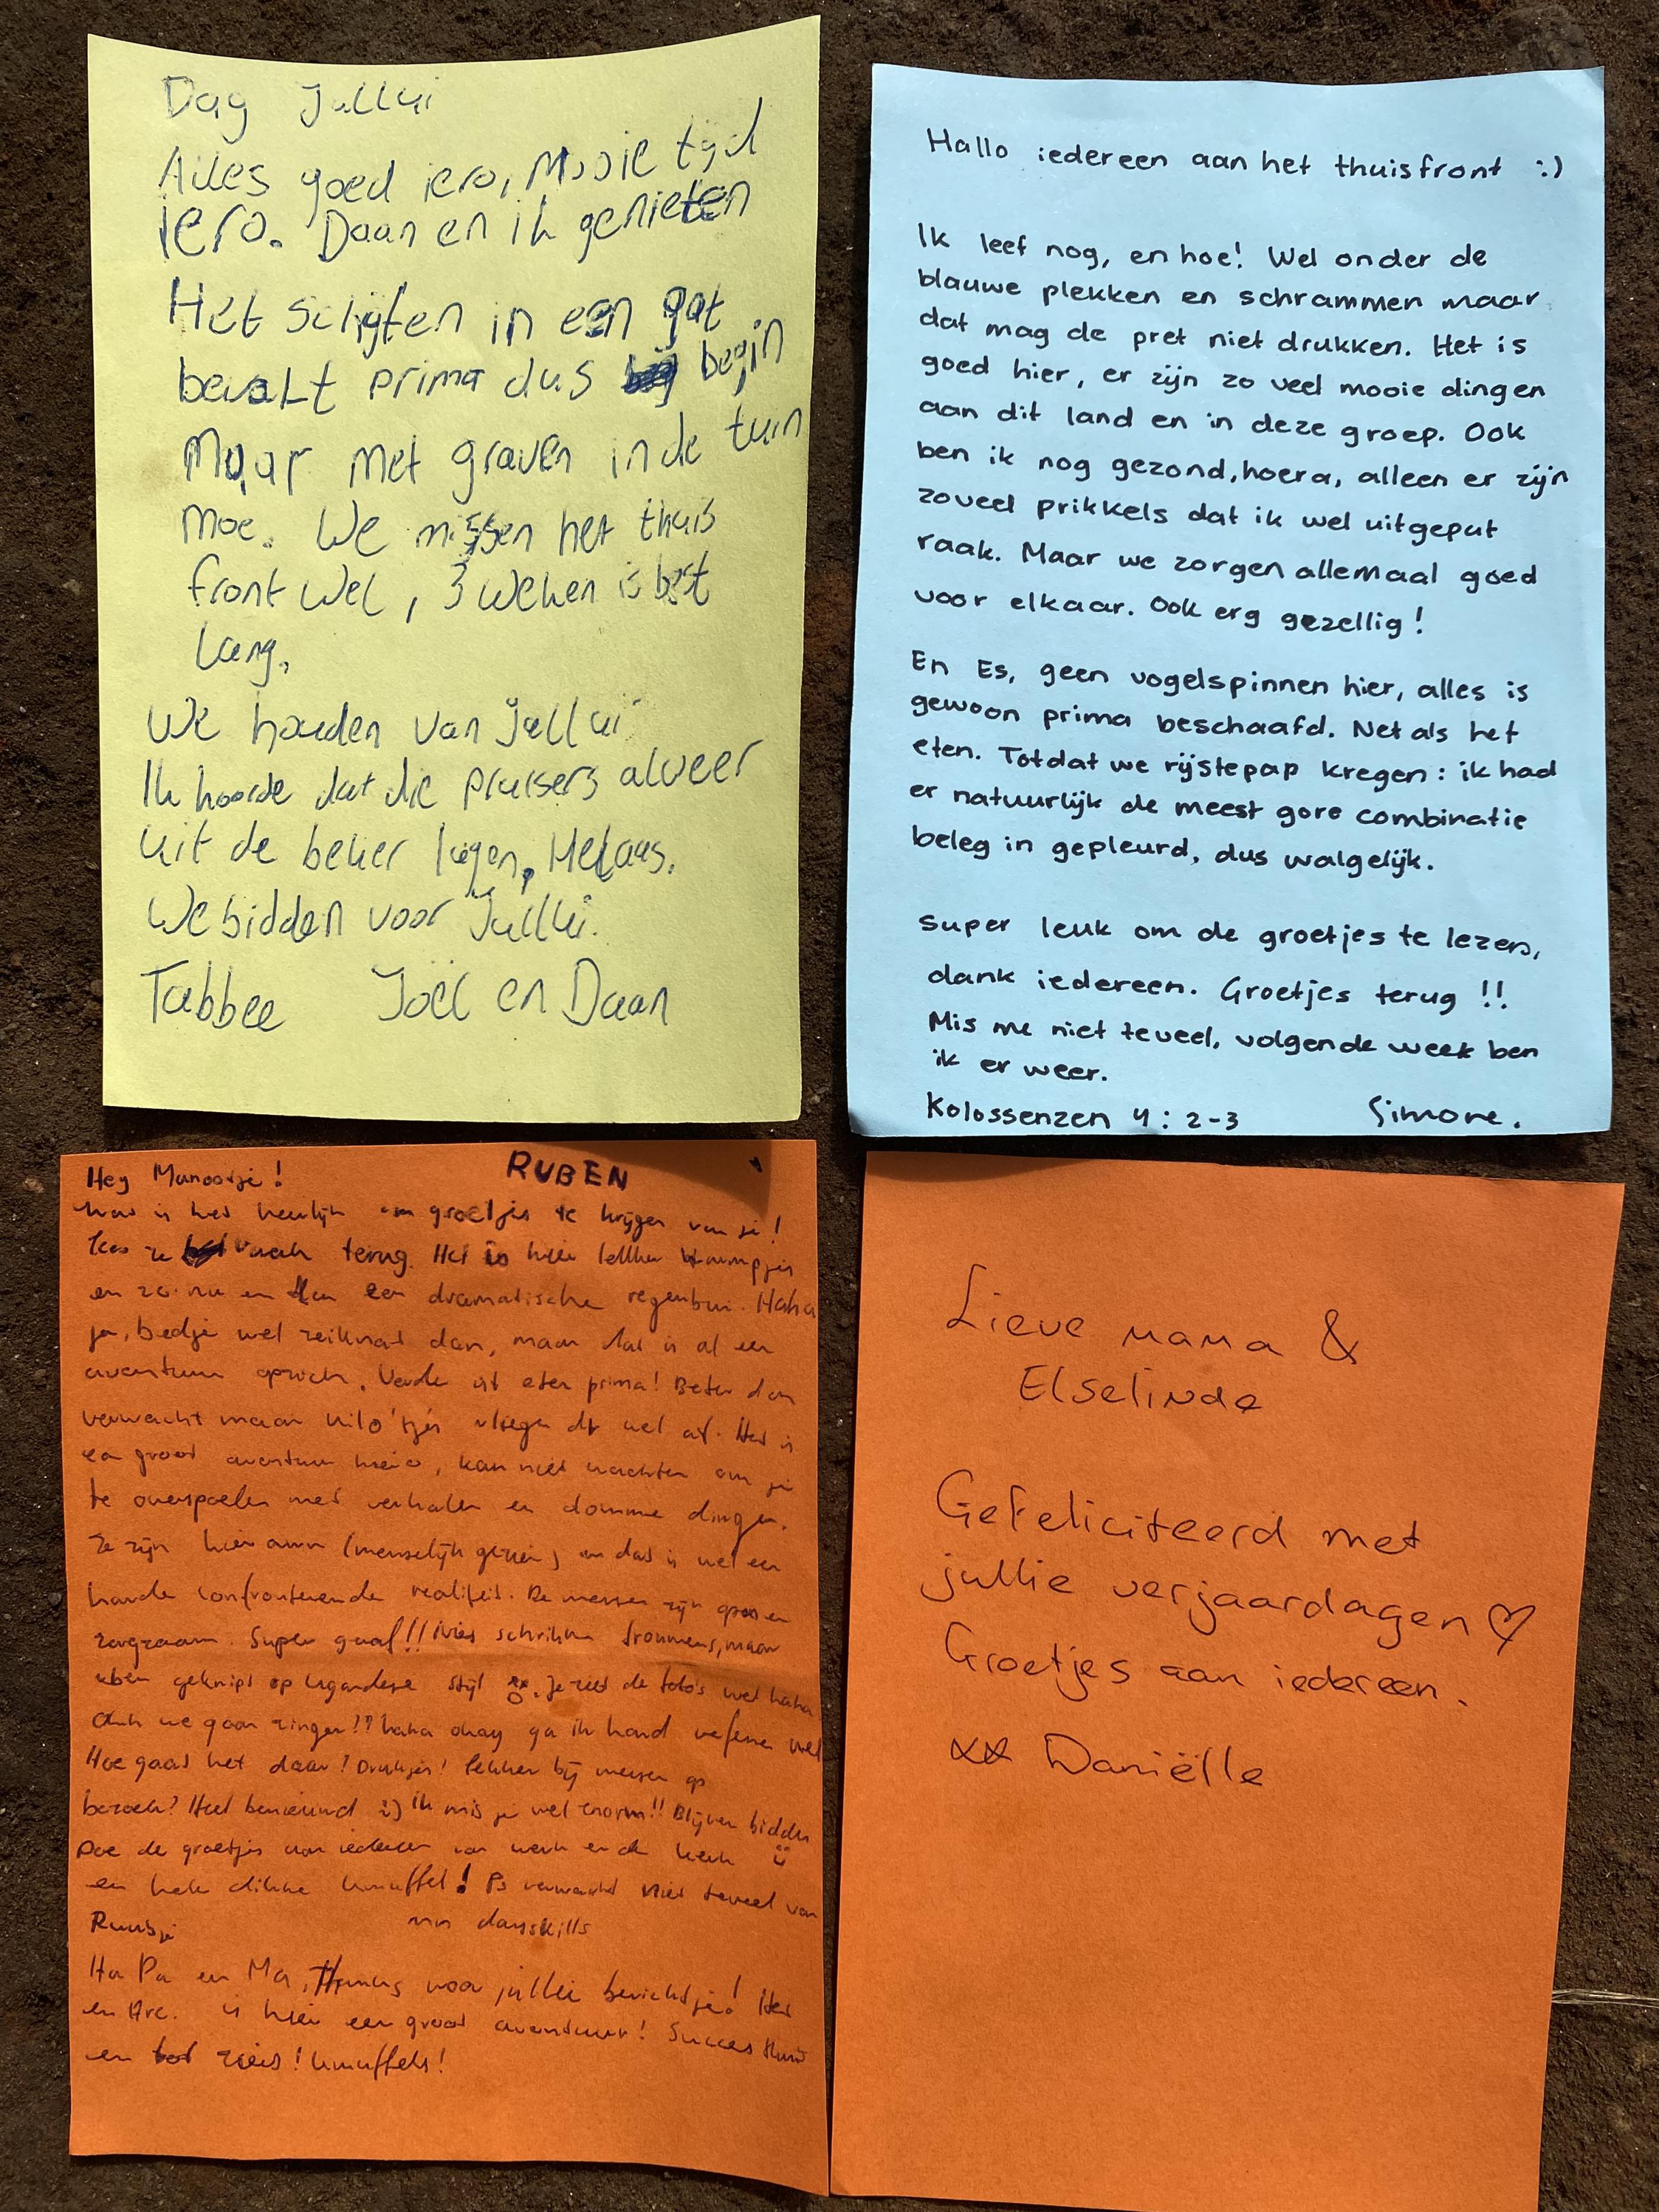 Dag Jullui
Alles goed iero, Mooie tyd
iero. Daan en ik genieten
Het schijten in een gat
bevalt prima dus begin
Maar met graven in de tuin
moe. We missen het thuis
front wel, 3 weken is best
lang,
We houden van Jullui
Ik hoorde dat die prutsers alweer
uit de beker liggen, Helaas.
We bidden voor Jullui.
Tabbee Joël en Daan
Hallo iedereen aan het thuisfront :)
Ik leef nog, en hoe! Wel onder de
blauwe plekken en schrammen maar
dat mag de pret niet drukken. Het is
goed hier, er zijn zo veel mooie dingen
aan dit land en in deze groep. Ook
ben ik nog gezond, hoera, alleen er zijn
zoveel prikkels dat ik wel uitgeput
raak. Maar we zorgen allemaal goed
voor elkaar. Ook erg gezellig!
En Es, geen vogelspinnen hier, alles is
gewoon prima beschaafd. Net als het
eten. Totdat we rijstepap kregen: ik had
er natuurlijk de meest gore combinatie
beleg in gepleurd, dus walgelijk.
super leuk om de groetjes te lezen,
dank iedereen. Groetjes terug !!
Mis me niet teveel, volgende week ben
ik er weer.
Kolossenzen 4 : 2-3 Simone.
Hey Manoortje! RUBEN
wat is het heerlijk om groetjes te krijgen van je!
Lees ze vaak terug. Het is hier lekker warmpjes
en zo nu en dan een dramatische regenbui. Haha
ja, bedje wel zeiknat dan, maar dat is al een
avontuur opzich. Verder ist eten prima! Beter dan
verwacht maar kilo'tjes vliegen dr wel af. Het is
een groot avontuur hiero, kan niet wachten om je
te overspoelen met verhalen en domme dingen.
Ze zijn hier arm (menselijk gezien) en dat is wel een
harde confronterende realiteit. De mensen zijn open en
zorgzaam. Super gaaf!! Niet schrikken trouwens, maar
uben geknipt op Ugandese stijl. Je ziet de foto's wel haha
Ohh we gaan zingen!? haha okay ga ik hard oefenen wel
Hoe gaat het daar? Drukjes? Lekker bij mensen op
bezoek? Heel benieuwd :) Ik mis je wel enorm!! Blijven bidden
Doe de groetjes aan iedereen van werk en de kerk
en hele dikke knuffel! Ps verwacht niet teveel van
Ruubje mn danskills
Ha Pa en Ma, Thanks voor jullie berichtje! Het
en Arc. is hier een groot avontuur! Succes thuis
en reis! Knuffels!
Lieve mama &
Elselinde
Gefeliciteerd met
jullie verjaardagen ♡
Groetjes aan iedereen.
xx Daniëlle